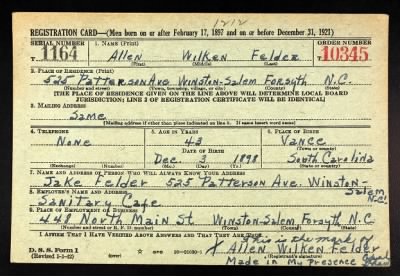 1212
REGISTRATION CARD—(Men born on or after February 17, 1897 and on or before December 31, 1921)
SERIAL NUMBER 1. NAME (Print) ORDER NUMBER
T 1164 Allen Wilken Felder T 10345
(First) (Middle) (Last)
2. PLACE OF RESIDENCE (Print)
525 Patterson Ave Winston-Salem Forsyth N.C.
(Number and street) (Town, township, village, or city) (County) (State)
[THE PLACE OF RESIDENCE GIVEN ON THE LINE ABOVE WILL DETERMINE LOCAL BOARD
JURISDICTION; LINE 2 OF REGISTRATION CERTIFICATE WILL BE IDENTICAL]
3. MAILING ADDRESS
Same
[Mailing address if other than place indicated on line 2. If same insert word same]
4. TELEPHONE 5. AGE IN YEARS 6. PLACE OF BIRTH
None 43 Vance
DATE OF BIRTH (Town or county)
Dec. 3 1898 South Carolina
(Exchange) (Number) (Mo.) (Day) (Yr.) (State or country)
7. NAME AND ADDRESS OF PERSON WHO WILL ALWAYS KNOW YOUR ADDRESS
Jake Felder 525 Patterson Ave. Winston-
Salem N.C.
8. EMPLOYER'S NAME AND ADDRESS
Sanitary Cafe
9. PLACE OF EMPLOYMENT OR BUSINESS
448 North Main St Winston-Salem Forsyth N.C.
(Number and street or R. F. D. number) (Town) (County) (State)
I AFFIRM THAT I HAVE VERIFIED ABOVE ANSWERS AND THAT THEY ARE TRUE.
This is the mark of
D. S. S. Form 1 X Allen Wilken Felder
(Revised 1-1-42) (over)
Made in My Presence